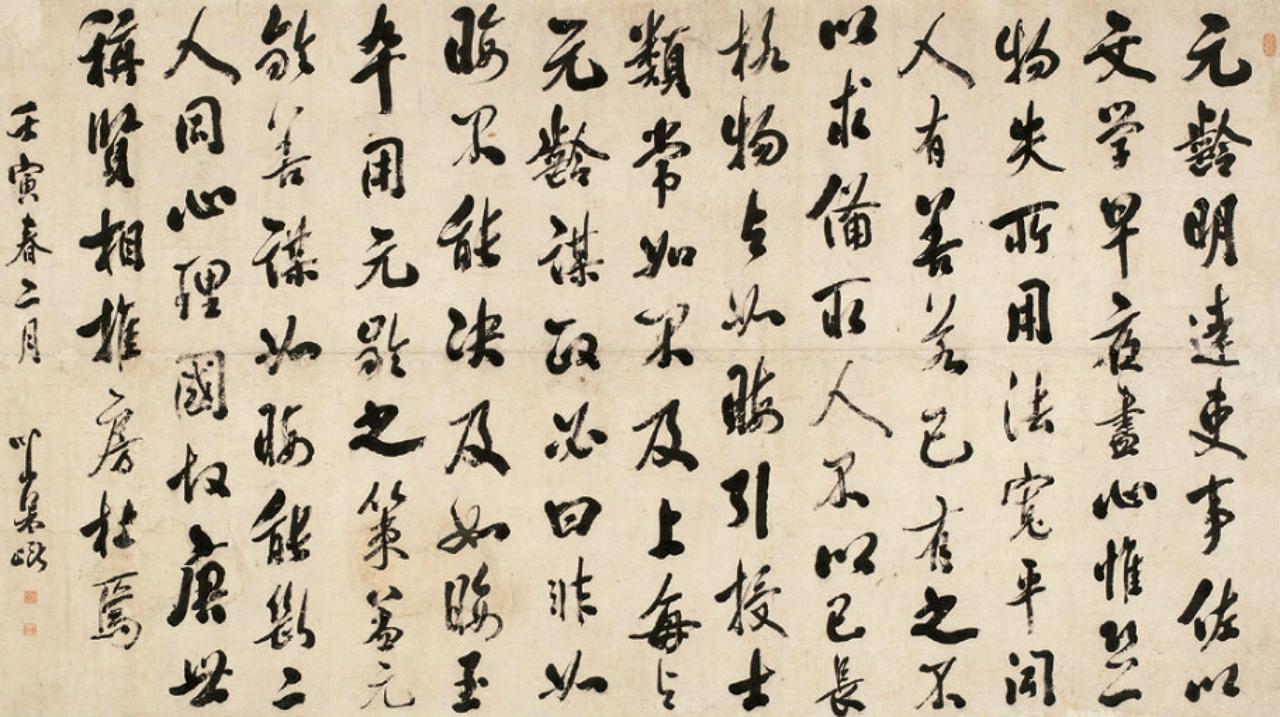 元齡明達吏事佐以
文学早夜盡心惟恐一
物失所用法寬平聞
人有善若己有之不
以求備取人不以己長
格物与如晦引授士
類常如不及上每与
元齡謀政必曰非如
晦不能決及如晦至
卒用元齡之策盖元
齡善謀如晦能斷二
人同心理國故唐世
稱賢相推房杜焉
壬寅春二月